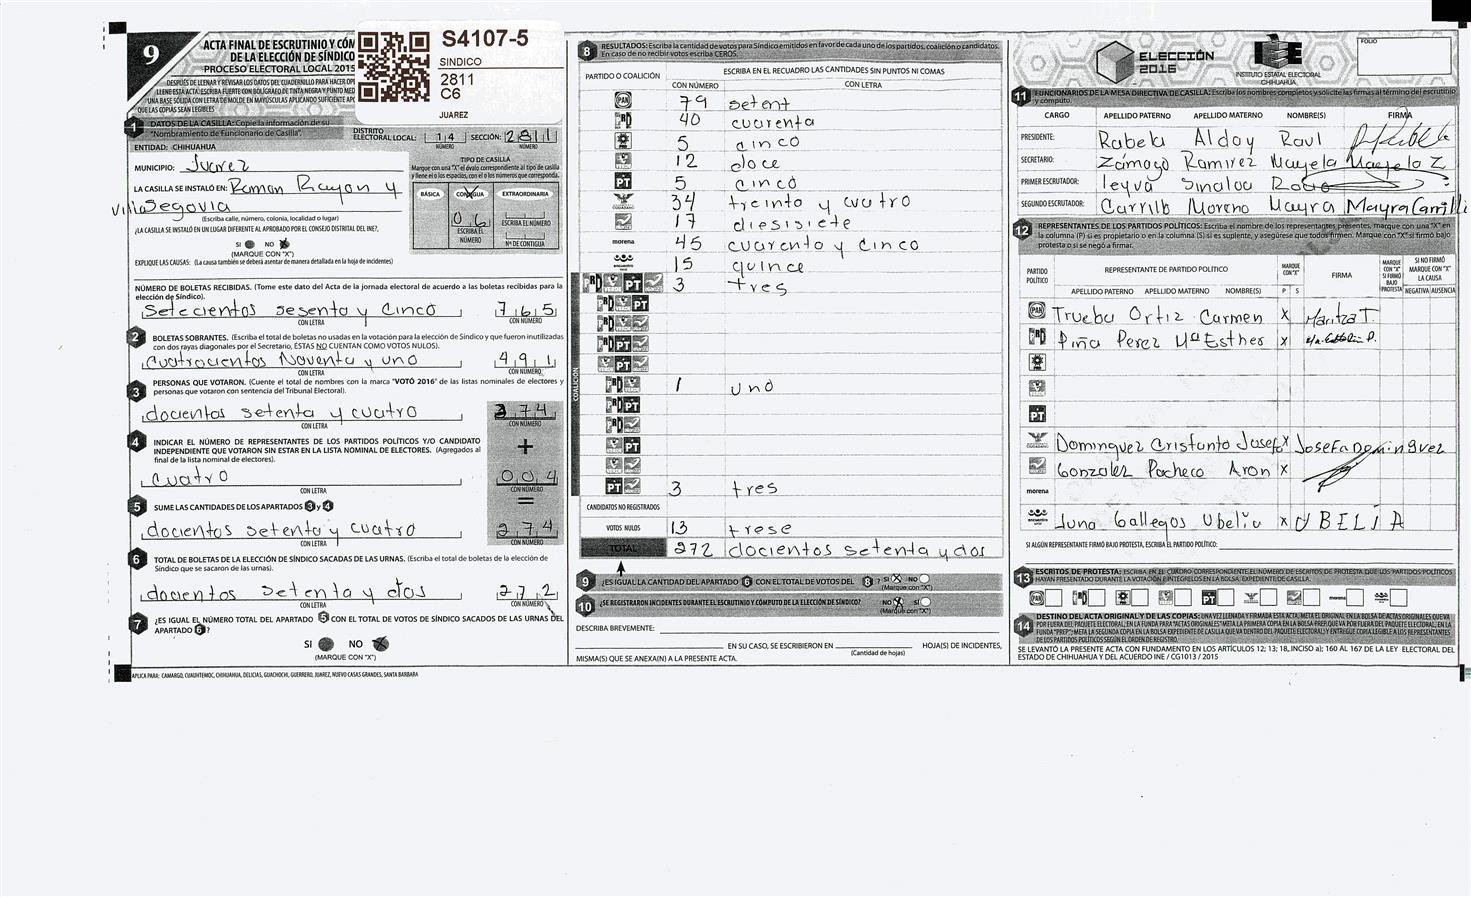 9
ACTA FINAL DE ESCRUTINIO Y CÓM
DE LA ELECCIÓN DE SÍNDICO
PROCESO ELECTORAL LOCAL 2015
S4107-5
SINDICO
2811
C6
JUAREZ
QUE LAS COPIAS SEAN LEGIBLES
1 DATOS DE LA CASILLA: Copie la información de su
"Nombramiento de Funcionario de Casilla".
DISTRITO ELECTORAL LOCAL: 14 SECCIÓN: 2811
NÚMERO NÚMERO
ENTIDAD: CHIHUAHUA
MUNICIPIO: Juarez
LA CASILLA SE INSTALÓ EN: Ramon Rayon y
villa Segovia
(Escriba calle, número, colonia, localidad o lugar)
¿LA CASILLA SE INSTALÓ EN UN LUGAR DIFERENTE AL APROBADO POR EL CONSEJO DISTRITAL DEL INE?,
SI NO X
(MARQUE CON "X")
EXPLIQUE LAS CAUSAS: (La causa también se deberá asentar de manera detallada en la hoja de incidentes)
TIPO DE CASILLA
Marque con una "X" el óvalo correspondiente al tipo de casilla
y llene el o los espacios, con el o los números que corresponda.
BÁSICA CONTIGUA EXTRAORDINARIA
06
ESCRIBA EL NÚMERO
ESCRIBA EL NÚMERO
Nº DE CONTIGUA
NÚMERO DE BOLETAS RECIBIDAS. (Tome este dato del Acta de la jornada electoral de acuerdo a las boletas recibidas para la
elección de Síndico).
Setecientos sesenta y cinco 765
CON LETRA CON NÚMERO
2 BOLETAS SOBRANTES. (Escriba el total de boletas no usadas en la votación para la elección de Síndico y que fueron inutilizadas
con dos rayas diagonales por el Secretario, ÉSTAS NO CUENTAN COMO VOTOS NULOS).
Cuatrocientos Noventa y uno 491
CON LETRA CON NÚMERO
3 PERSONAS QUE VOTARON. (Cuente el total de nombres con la marca "VOTÓ 2016" de las listas nominales de electores y
personas que votaron con sentencia del Tribunal Electoral).
docientos setenta y cuatro 274
CON LETRA CON NÚMERO
+
4 INDICAR EL NÚMERO DE REPRESENTANTES DE LOS PARTIDOS POLÍTICOS Y/O CANDIDATO
INDEPENDIENTE QUE VOTARON SIN ESTAR EN LA LISTA NOMINAL DE ELECTORES. (Agregados al
final de la lista nominal de electores).
cuatro 004
CON LETRA CON NÚMERO
=
5 SUME LAS CANTIDADES DE LOS APARTADOS 3 y 4
docientos setenta y cuatro 274
CON LETRA CON NÚMERO
6 TOTAL DE BOLETAS DE LA ELECCIÓN DE SÍNDICO SACADAS DE LAS URNAS. (Escriba el total de boletas de la elección de
Síndico que se sacaron de las urnas).
docientos setenta y dos 272
CON LETRA CON NÚMERO
7 ¿ES IGUAL EL NÚMERO TOTAL DEL APARTADO 5 CON EL TOTAL DE VOTOS DE SÍNDICO SACADOS DE LAS URNAS DEL
APARTADO 6?
SI NO X
(MARQUE CON "X")
APLICA PARA: CAMARGO, CUAUHTEMOC, CHIHUAHUA, DELICIAS, GUACHOCHI, GUERRERO, JUAREZ, NUEVO CASAS GRANDES, SANTA BARBARA
8 RESULTADOS: Escriba la cantidad de votos para Síndico emitidos en favor de cada uno de los partidos, coalición o candidatos.
En caso de no recibir votos escriba CEROS.
PARTIDO O COALICIÓN
ESCRIBA EN EL RECUADRO LAS CANTIDADES SIN PUNTOS NI COMAS
CON NÚMERO CON LETRA
PAN 79 setent
PRD 40 cuarenta
5 cinco
12 doce
PT 5 cinco
34 treinta y cuatro
17 diesisiete
morena 45 cuarenta y cinco
15 quince
COALICIÓN
PT 3 tres
1 uno
PT 3 tres
CANDIDATOS NO REGISTRADOS
VOTOS NULOS 13 trese
TOTAL 272 docientos setenta y dos
9 ¿ES IGUAL LA CANTIDAD DEL APARTADO 6 CON EL TOTAL DE VOTOS DEL 8? SI X NO
(Marque con "X")
10 ¿SE REGISTRARON INCIDENTES DURANTE EL ESCRUTINIO Y CÓMPUTO DE LA ELECCIÓN DE SÍNDICO? NO X SI
(Marque con "X")
DESCRIBA BREVEMENTE:
EN SU CASO, SE ESCRIBIERON EN HOJA(S) DE INCIDENTES,
(Cantidad de hojas)
MISMA(S) QUE SE ANEXA(N) A LA PRESENTE ACTA.
ELECCIÓN
2016
IEE
INSTITUTO ESTATAL ELECTORAL
CHIHUAHUA
FOLIO
11 FUNCIONARIOS DE LA MESA DIRECTIVA DE CASILLA: Escriba los nombres completos y solicite las firmas al término del escrutinio
y cómputo.
CARGO APELLIDO PATERNO APELLIDO MATERNO NOMBRE(S) FIRMA
PRESIDENTE: Rabela Alday Raul
SECRETARIO: Zámago Ramirez Mayela Mayela Z
PRIMER ESCRUTADOR: leyva Sinaloa Rocio
SEGUNDO ESCRUTADOR: Carrillo Moreno Mayra Mayra Carrillo
12 REPRESENTANTES DE LOS PARTIDOS POLÍTICOS: Escriba el nombre de los representantes presentes, marque con una "X" en
la columna (P) si es propietario o en la columna (S) si es suplente, y asegúrese que todos firmen. Marque con "X" si firmó bajo
protesta o si se negó a firmar.
PARTIDO POLÍTICO
REPRESENTANTE DE PARTIDO POLÍTICO
MARQUE CON "X"
FIRMA
MARQUE CON "X" SI FIRMÓ BAJO PROTESTA
SI NO FIRMÓ MARQUE CON "X" LA CAUSA
APELLIDO PATERNO APELLIDO MATERNO NOMBRE(S) P S NEGATIVA AUSENCIA
PAN Trueba Ortiz Carmen X Maritza T.
PRD Piña Perez Mª Esther X
PT
Dominguez Cristanto Josefa X Josefa Dominguez
Gonzalez Pacheco Aron X
morena
Luna Gallegos Ubelia X UBELIA
SI ALGÚN REPRESENTANTE FIRMÓ BAJO PROTESTA, ESCRIBA EL PARTIDO POLÍTICO:
13 ESCRITOS DE PROTESTA: ESCRIBA EN EL CUADRO CORRESPONDIENTE EL NÚMERO DE ESCRITOS DE PROTESTA QUE LOS PARTIDOS POLÍTICOS
HAYAN PRESENTADO DURANTE LA VOTACIÓN E INTÉGRELOS EN LA BOLSA EXPEDIENTE DE CASILLA.
14 DESTINO DEL ACTA ORIGINAL Y DE LAS COPIAS:
SE LEVANTÓ LA PRESENTE ACTA CON FUNDAMENTO EN LOS ARTÍCULOS 12; 13; 18, INCISO a); 160 AL 167 DE LA LEY ELECTORAL DEL
ESTADO DE CHIHUAHUA Y DEL ACUERDO INE / CG1013 / 2015